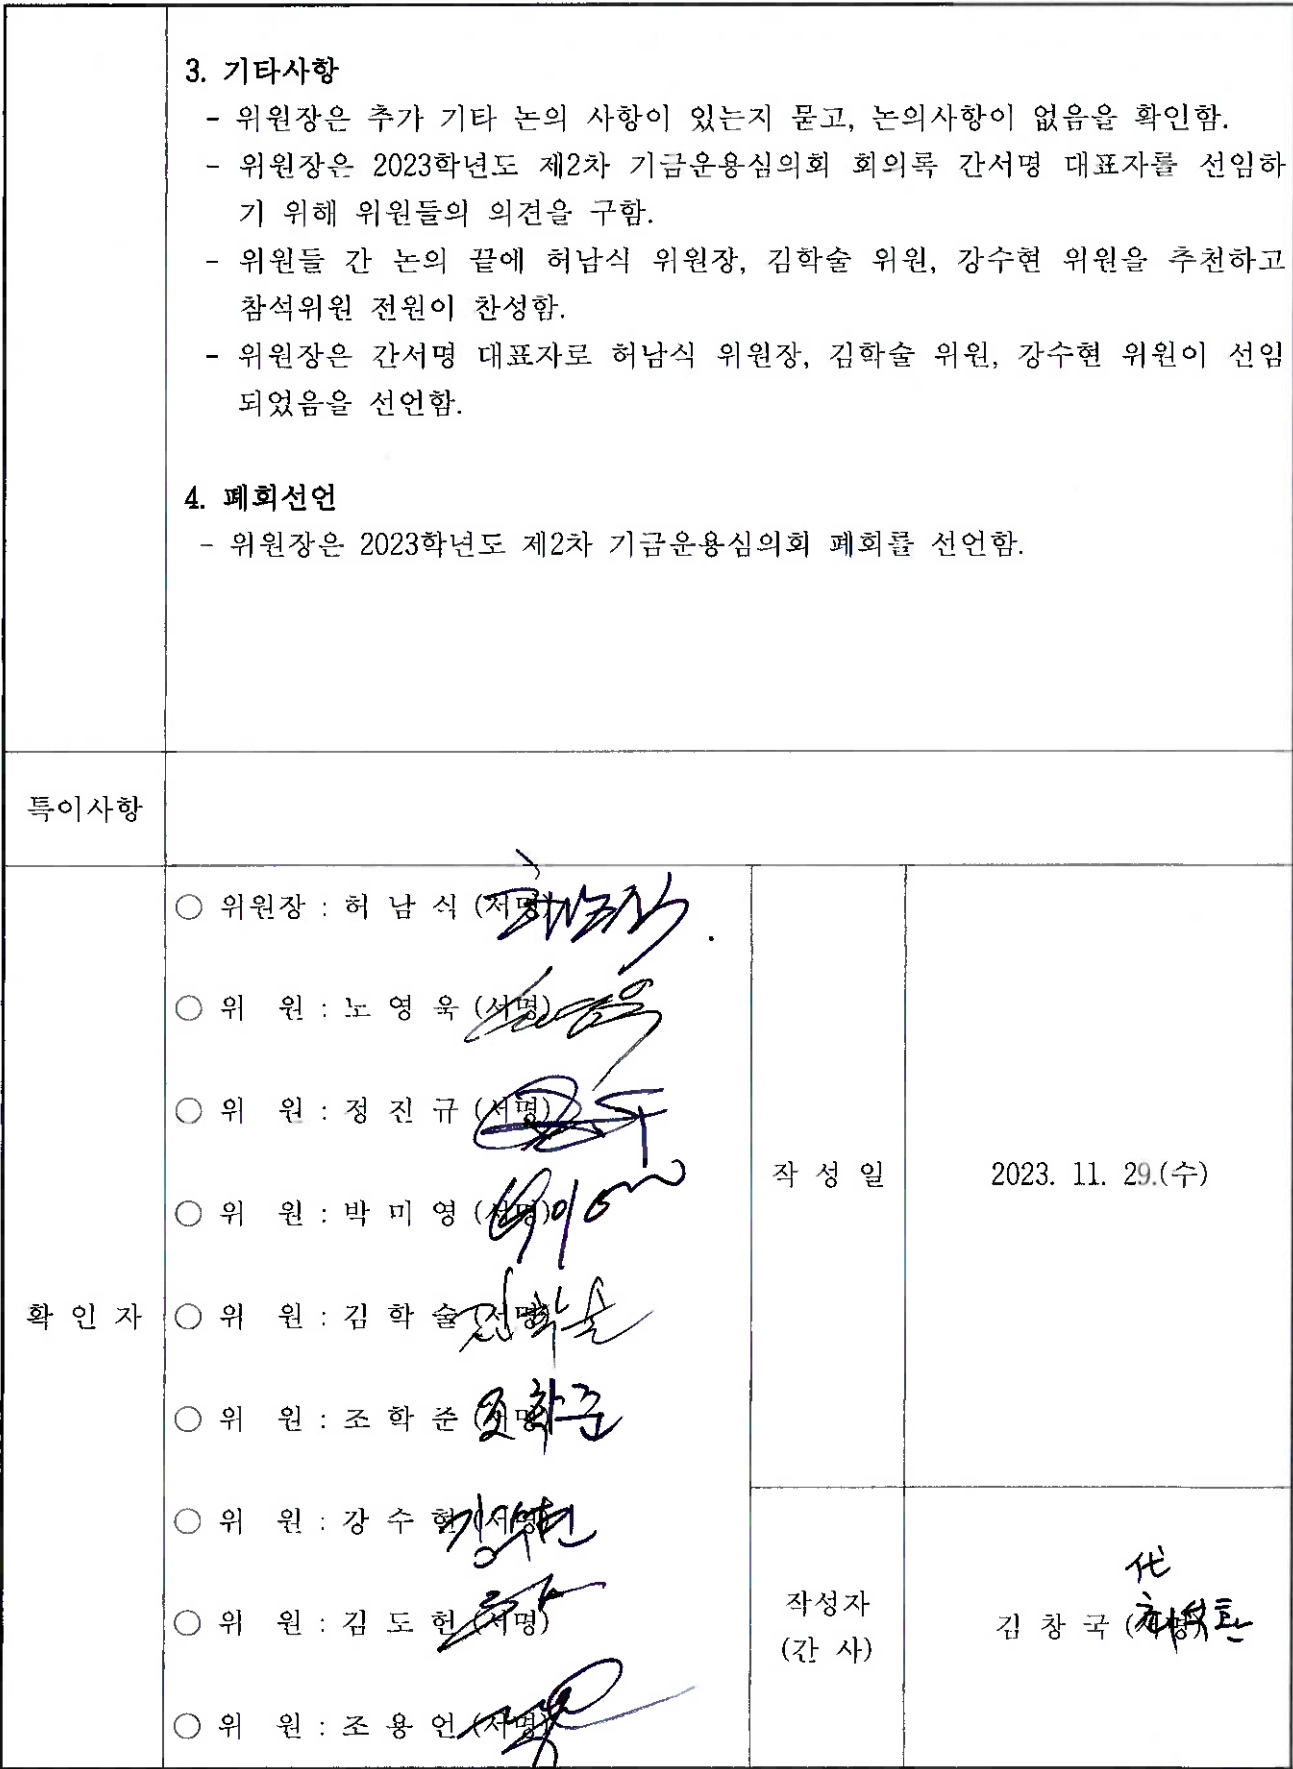 3. 기타사항
- 위원장은 추가 기타 논의 사항이 있는지 묻고, 논의사항이 없음을 확인함.
- 위원장은 2023학년도 제2차 기금운용심의회 회의록 간서명 대표자를 선임하
기 위해 위원들의 의견을 구함.
- 위원들 간 논의 끝에 허남식 위원장, 김학술 위원, 강수현 위원을 추천하고
참석위원 전원이 찬성함.
- 위원장은 간서명 대표자로 허남식 위원장, 김학술 위원, 강수현 위원이 선임
되었음을 선언함.
4. 폐회선언
- 위원장은 2023학년도 제2차 기금운용심의회 폐회를 선언함.
특이사항
확 인 자
○ 위원장 : 허 남 식 (서명)
○ 위 원 : 노 영 욱 (서명)
○ 위 원 : 정 진 규 (서명)
○ 위 원 : 박 미 영 (서명)
○ 위 원 : 김 학 술 (서명) 김학술
○ 위 원 : 조 학 준 (서명) 조학준
○ 위 원 : 강 수 현 (서명) 강수현
○ 위 원 : 김 도 헌 (서명)
○ 위 원 : 조 용 언 (서명)
작 성 일
2023. 11. 29.(수)
작성자
(간 사)
代
김 창 국 (서명)